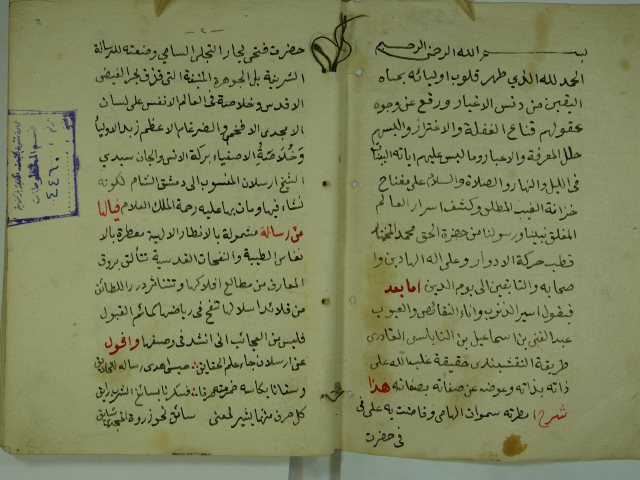 بسم الله الرحمن الرحيم
الحمد لله الذي طهر قلوب اوليائه بمياه
اليقين من دنس الاغيار ورفع عن وجوه
عقولهم قناع الغفلة والاغترار والبسهم
حلل المعرفة والاعتبار وما لبس عليهم اياته البينات
في الليل والنهار والصلاة والسلام على مفتاح
خزانة الغيب المطلق وكشف اسرار العالم
المغلق نبينا ورسولنا من حضرة الحق محمد المختار
قطب حركة الادوار وعلى اله الهادين وا
صحابه والتابعين الى يوم الدين اما بعد
فيقول اسير الذنوب واناء النقائص والعيوب
عبد الغني بن اسماعيل بن النابلسي القادري
طريقة النقشبندي حقيقة علي الله على
ذاته بذاته وعوضه عن صفاته بصفاته هذا
شرح امطرته سموات الهامي وفاضت به على في
في حضرت
٢
حضرت فتحي بحار التجلي السامي وضعته للرسالة
الشريفة بل الجوهرة المنيفة التي قذف بحر الفيض
الاقدس وخلاصة في العالم الانفس على لسان
المحمدي الافخم والضرغام الاعظم زبد الاوليا
وخلاصة الاصفياء بركة الانس والجان سيدي
الشيخ ارسلان المنسوب الى دمشق الشام لكونه
نشاء فيها ومات بها عليه رحمة الملك العلام فيالها
من رسالة مشمولة بالانظار الالهية معطرة بالا
نفاس الطيبة والنفحات القدسية تتألق بروق
المعارف من مطالع افلاكها وتتناثر درر اللطائف
من قلائد اسلاكها تفتح في رياضها كمائم القبول
فليس بن العجائب الى انشد في وصفها واقول
عن ارسلان جا علم الحقايق
وسقانا بكاسه فسكرنا بسائغ الشرب رايق
كل حرف منها يشير لمعنى سائق نحو ذروة المجد
قسم المخطوطات
٤٤٦٠